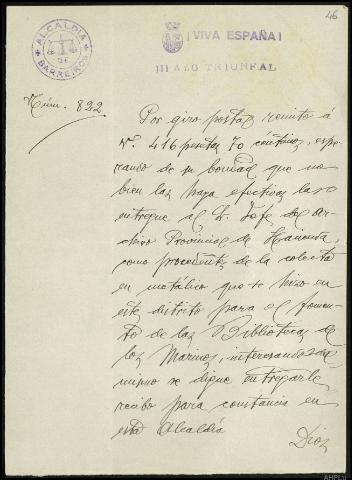 46
ALCALDIA DE BARREIROS
¡VIVA ESPAÑA!
III AÑO TRIUNFAL
Núm. 822
Por giro postal remito á
V. 416 pesetas 70 céntimos, espe-
rando de su bondad que no
bien las haga efectivas las
entregue al Sr. Jefe del Ar-
chivo Provincial de Hacienda,
como procedentes de la colecta
en metálico que se hizo en
este distrito para el fomen-
to de las Bibliotecas de
los Marinos, interesando
mismo se digne entregarle
recibo para constancia en
esta Alcaldía
Dios
AHPLu